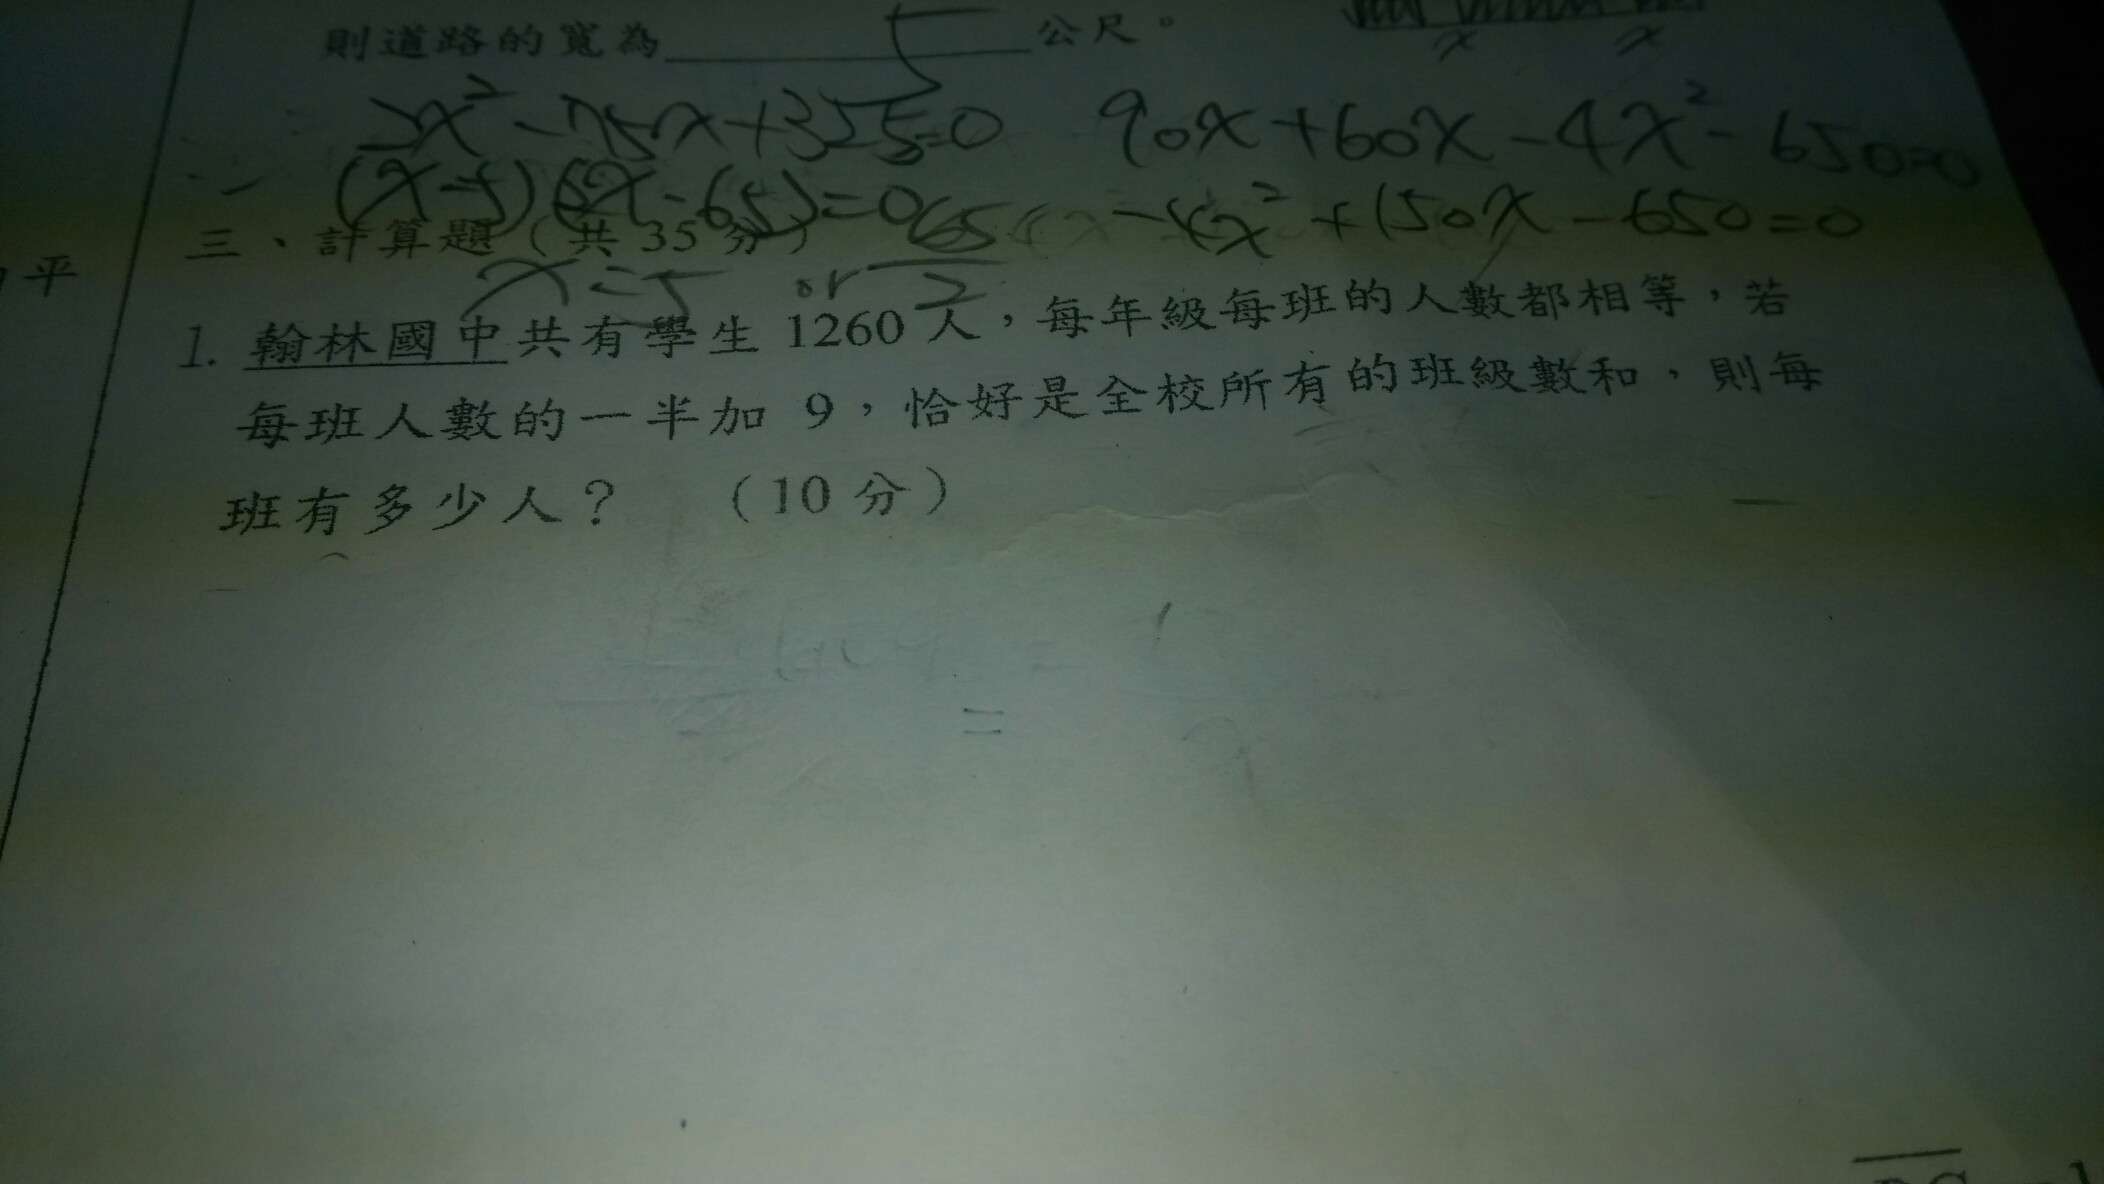 則道路的寬為 5 公尺。
x x
2x² - 75x + 325 = 0
90x + 60x - 4x² - 650 = 0
(x-5)(2x-65) = 0
-4x² + 150x - 650 = 0
平
三、計算題(共 35 分)
x = 5 or 65/2
1. 翰林國中共有學生 1260 人,每年級每班的人數都相等,若
每班人數的一半加 9,恰好是全校所有的班級數和,則每
班有多少人? (10 分)
=